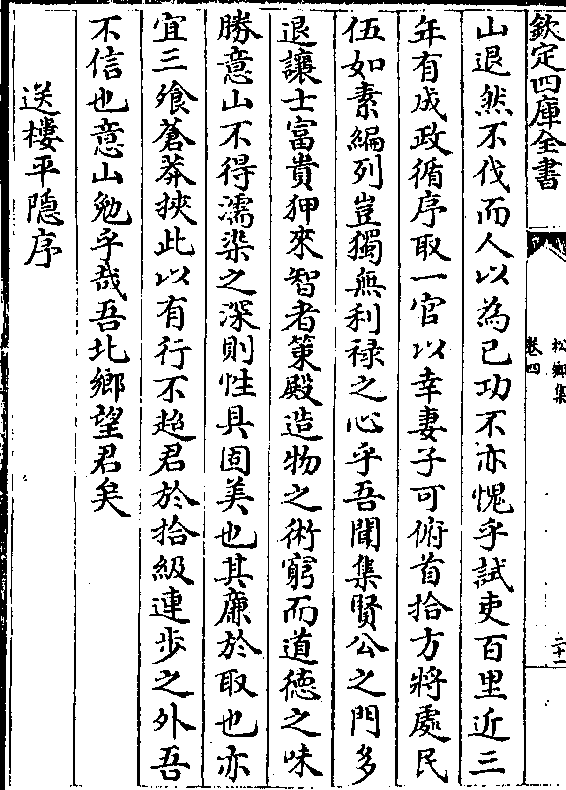 欽定四庫全書
松鄉集
卷四
二十一
山退然不伐而人以為已功不亦愧乎試吏百里近三
年有成政循序取一官以幸妻子可俯首拾方將處民
伍如素編列豈獨無利禄之心乎吾聞集賢公之門多
退讓士富貴狎來智者策殿造物之術窮而道德之味
勝意山不得濡染之深則性具固美也其廉於取也亦
宜三飱蒼莽挾此以有行不趍君於拾級連步之外吾
不信也意山勉乎哉吾北鄉望君矣
送樓平隠序